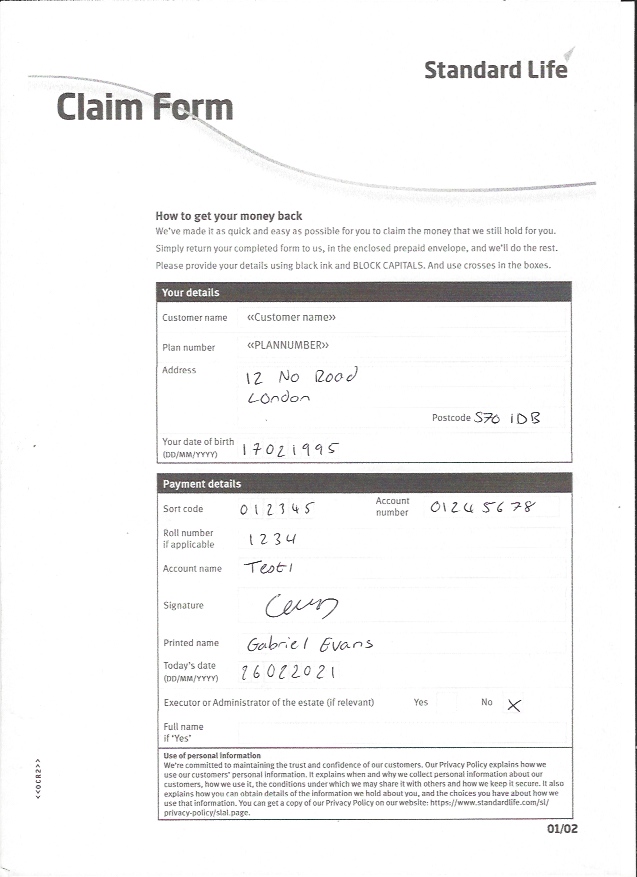 Standard Life
Claim Form
How to get your money back
We've made it as quick and easy as possible for you to claim the money that we still hold for you.
Simply return your completed form to us, in the enclosed prepaid envelope, and we'll do the rest.
Please provide your details using black ink and BLOCK CAPITALS. And use crosses in the boxes.
Your details
Customer name «Customer name»
Plan number «PLANNUMBER»
Address 12 No Road
London
Postcode S70 1DB
Your date of birth (DD/MM/YYYY) 17021995
Payment details
Sort code 012345 Account number 01245678
Roll number if applicable 1234
Account name Test1
Signature
Printed name Gabriel Evans
Today's date (DD/MM/YYYY) 26022021
Executor or Administrator of the estate (if relevant) Yes No X
Full name if 'Yes'
Use of personal information
We're committed to maintaining the trust and confidence of our customers. Our Privacy Policy explains how we
use our customers' personal information. It explains when and why we collect personal information about our
customers, how we use it, the conditions under which we may share it with others and how we keep it secure. It also
explains how you can obtain details of the information we hold about you, and the choices you have about how we
use that information. You can get a copy of our Privacy Policy on our website: https://www.standardlife.com/sl/
privacy-policy/slal.page.
<<OCR2>>
01/02